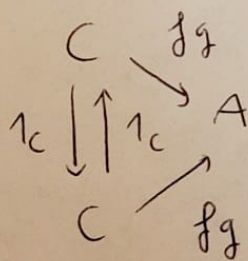 C fg
A
1c 1c
C fg